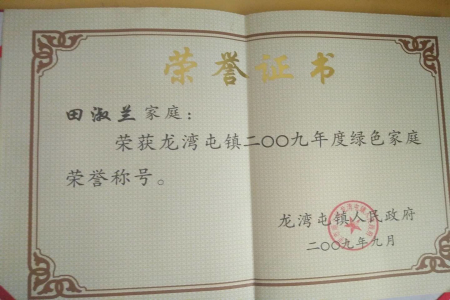 荣誉证书
田淑兰家庭：
荣获龙湾屯镇二〇〇九年度绿色家庭
荣誉称号。
龙湾屯镇人民政府
二〇〇九年九月